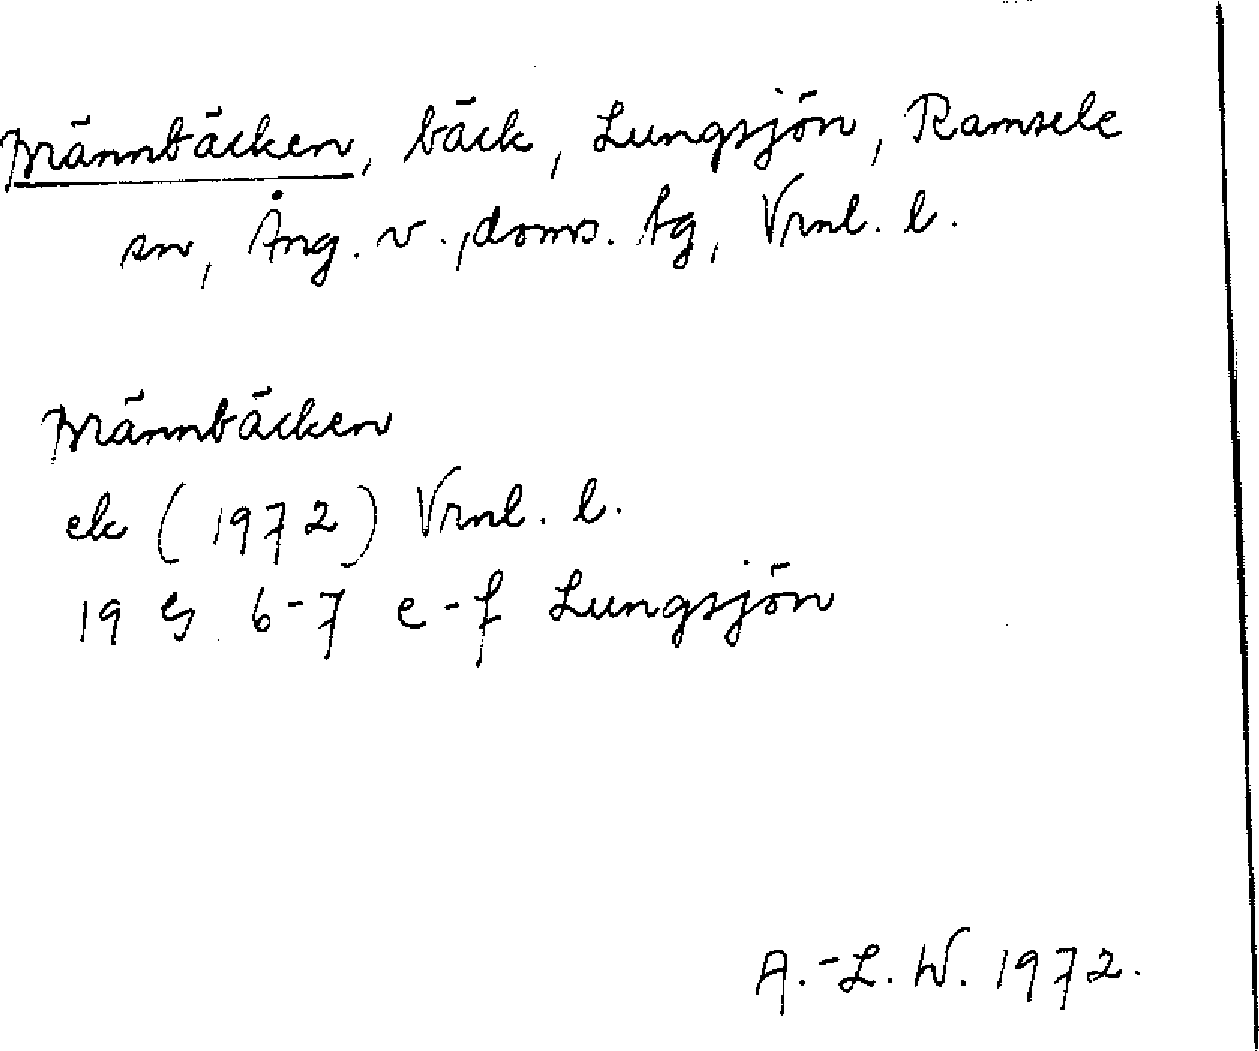 Brännbäcken, bäck, Lungsjön, Ramsele
sn, Ång. v., doms. tg, Vrnl. l.
Brännbäcken
ek (1972) Vrnl. l.
19 G 6-7 e-f Lungsjön
A.-L. W. 1972.